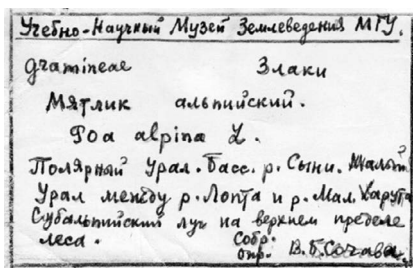 Учебно-Научный Музей Землеведения МГУ.
Gramineae Злаки
Мятлик альпийский.
Poa alpina L.
Полярный Урал. Басс. р. Сыни. Малый
Урал между р. Лопта и р. Мал. Харута
Субальпийский луг на верхнем пределе
леса. Собр.
опр. В.Б. Сочава.